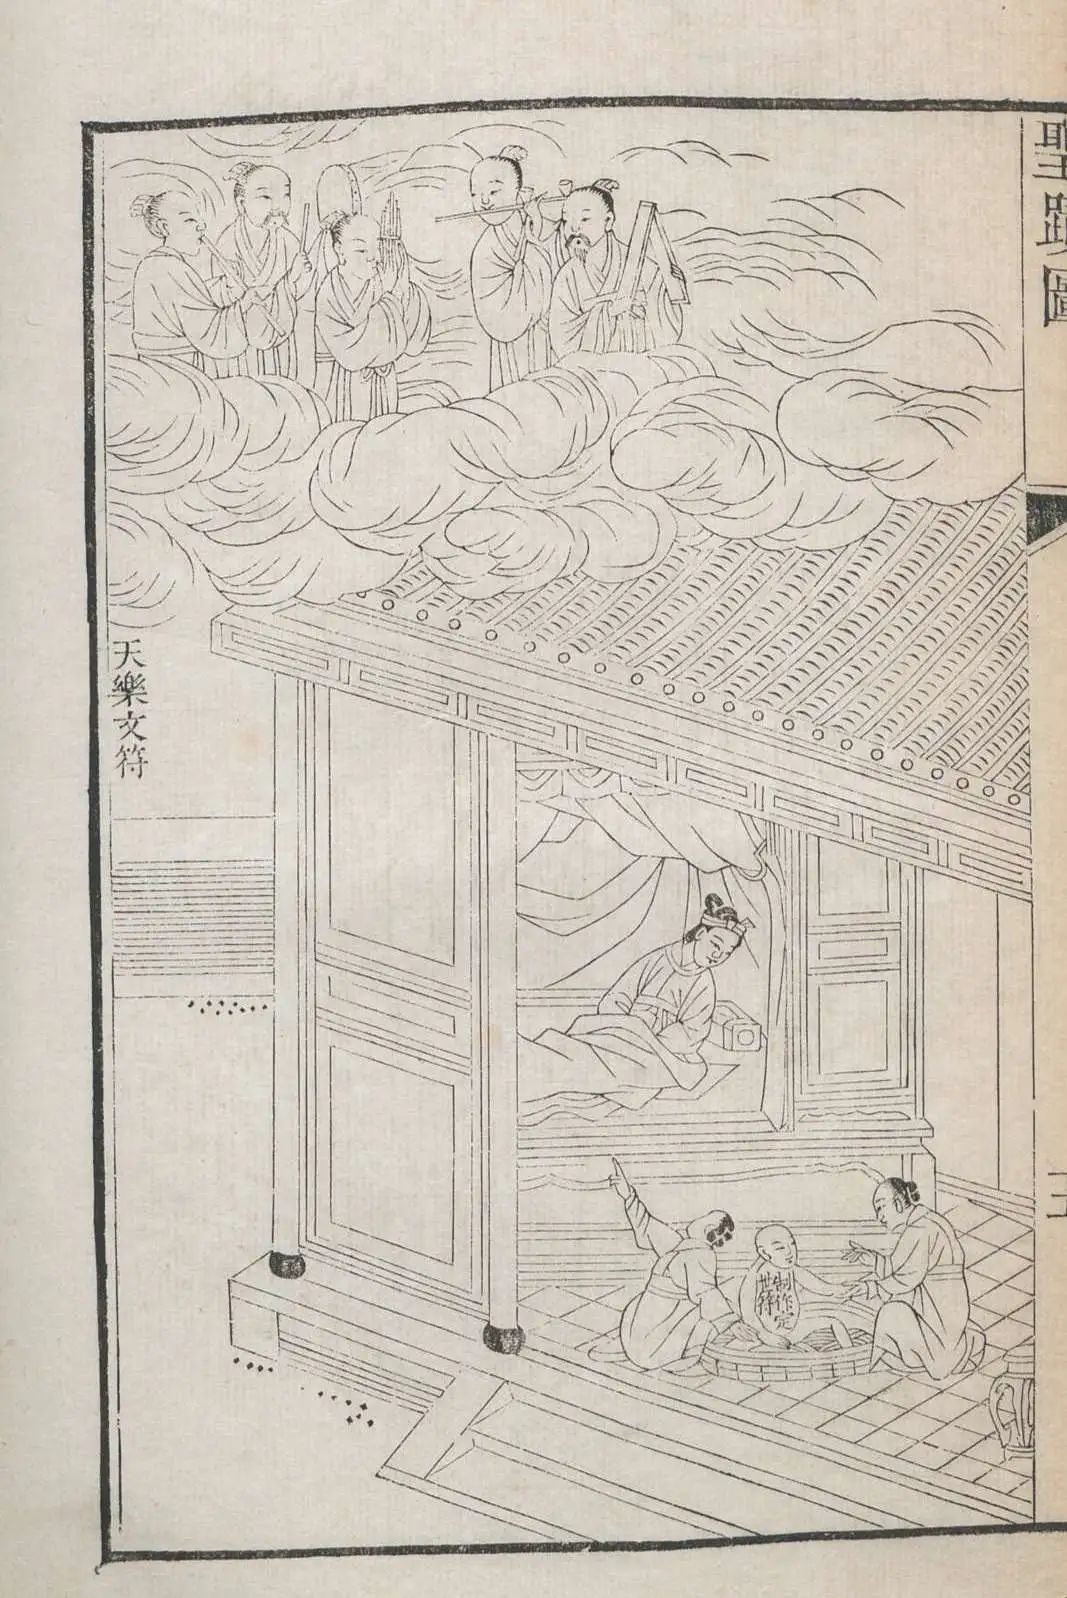 聖蹟圖
天樂文符
制作定
世符